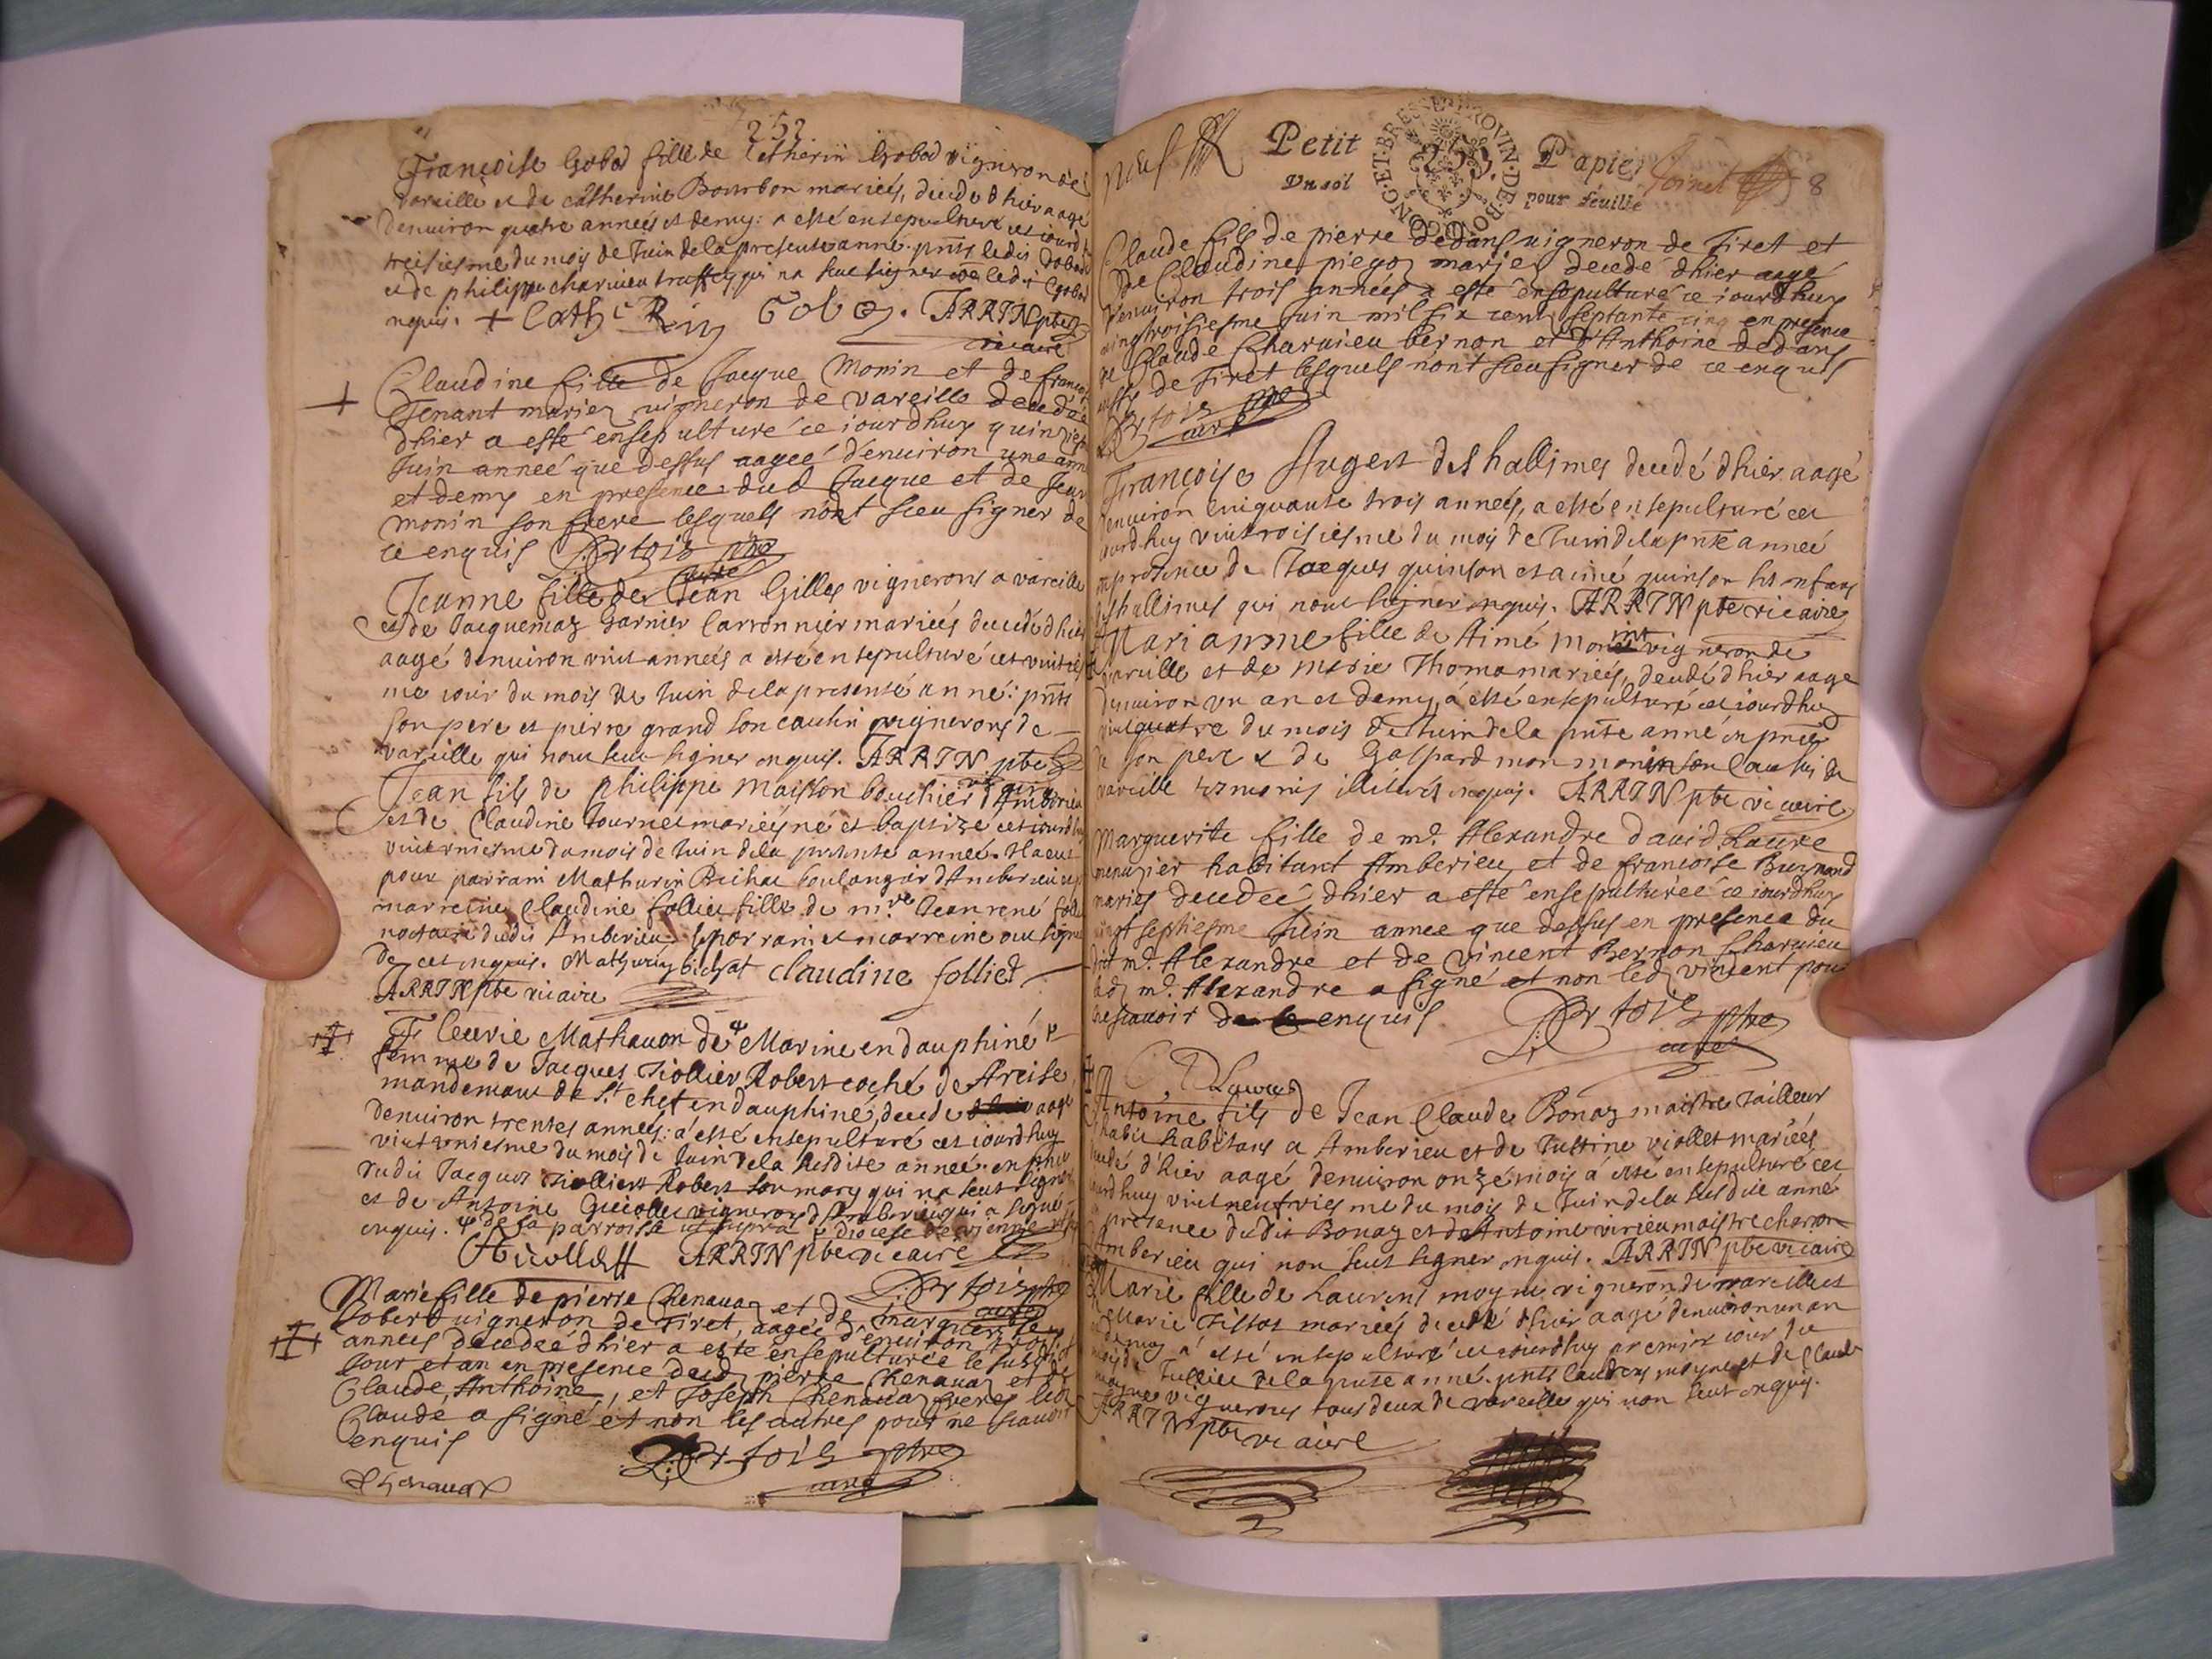 252
Françoise Gobod fille de Catherin Gobod vigneron de
vareille et de Catherine Bourbon mariés, decede d hier aagé
denuiron quatre années et demy: a esté ensepulturé cet iourdhuy
treisiesme du mois de Juin de la presente anné. pnts ledit Gobod
et de philippe charuieu qui na sceu signer ledit Gobod
nquis. + Cath R in Goboz. ARRIN pbtre
vicaire
Claudine fille de Jacque Monin et de françoise
Tenant mariez vigneron de vareille decedée
dhier a esté ensepulturé ce iourdhuy quinziesme
Juin anneé que dessus aageé d'enuiron une anneé
et demy en presence dud Jacque et de Jean
monin son frere lesquels nont sceu signer de
ce enquis Bertois ptre
curé
Jeanne fille de Jean Gilles vignerons a vareille
et de Jacquemaz Garnier mariés decedé dhier
aagé denuiron vint années a esté ensepulturé cet
me iour du mois de Juin dela presente anné: pnts
son pere et pierre grand son cousin vignerons de
vareille qui nont sceu signer enquis. ARRIN pbtre
vicaire
Jean fils de philippe maisson bouchier d'Amberieu
et de Claudine Tournet mariés né et baptizé cet iourdhuy
du mois de Juin dela presente année. Il a eut
pour parrain Mathurin Bichat boulanger d'Amberieu et
marreine Claudine folliet fille de me Jean rené folliet
nottaire dudit Amberieu le parrain et marreine ont signé
de cet enquis. Mathurin bichat claudine folliet
ARRIN pbtre vicaire
Fleurie Mathauon de Marine en dauphiné
femme de Jacques Tiollier Robert coché de Arcise
mandement de St chef en dauphiné, decede aagé
denuiron trentes années: a esté ensepulturé cet iourdhuy
vintvniesme du mois de Juin dela susdite année. en pnce
dudit Jacques Tiolliert Robert son mary qui na sceut signer
et de Antoine Guiollet vignerons d'Amberieu qui a signé
enquis. de la parroisse ut supra diocese de vienne
ARRIN pbtre vicaire
Bertois ptre
curé
Marie fille de pierre Chenauaz et de marguerite
Gobert vigneron de Tiret, aagée d'enuiron trois
années decedeé dhier a esté ensepulturée le susdit
iour et an en presence dud pierre Chenauaz et de
Claude, Anthoine, et Joseph Chenauaz freres led
Claude a signé et non les autres pour ne scauoir
enquis
Bertois ptre
curé
Chenauaz
neuf Petit Papier 8
Vn sol pour feuille
GONG·ET·BRESSE PROVIN·DE·BO
253
Claude fils de pierre dedans vigneron de Tiret et
de Claudine piegoz mariez decedé dhier aagé
denuiron trois années a esté ensepulturé ce iourdhuy
vingtroisiesme Juin mil six cent septante cinq en presence
de Claude Charuieu bernon et d'Anthoine dedans
de Tiret lesquels n'ont sceu signer de ce enquis
Bertois ptre
curé
Françoise Augert des hallimes decedé dhier aagé
denuiron cinquante trois années, a esté ensepulturé cet
iourdhuy vintroisiesme du mois de Juin dela pnte anneé
en presence de Jacques quinson et aimé quinson ses enfans
des hallimes qui nont signer enquis. ARRIN pbtre vicaire
Marianne fille de Aimé monin vigneron de
vareille et de Marie Thoma mariés, decedé dhier aagé
denuiron vn an et demy, a esté ensepulturé cet iourdhuy
vintquatre du mois de Juin dela pnte anné en pnce
de son pere & de Gaspard monin son cousin de
vareille tesmoins illiterés enquis. ARRIN pbtre vicaire
Marguerite fille de me. Alexandre dauid Laure
menuzier habitant Amberieu, et de francoise Buynand
mariés decedeé dhier a esté ensepulturée ce iourdhuy
vingt septiesme Juin année que dessus en presence du
dit me. Alexandre et de vincent Bernon Charuieu
led me. Alexandre a signé et non led vincent pour
ne scauoir de ce enquis
Bertois ptre
curé
D Laure
Antoine fils de Jean Claude Bonaz maistre tailleur
d'habit habitans a Amberieu et de Justine viollet mariés
decedé d'hier aagé denuiron onzé mois a esté ensepulturé cet
iourdhuy vintneufviesme du mois de Juin dela susdite anné
presence dudit Bonaz et de Antoine varieu maistre charon
Amberieu qui non sceut signer enquis. ARRIN pbtre vicaire
Marie fille de Laurent moyne vigneron de vareille et
Marie Tissot mariés decedé dhier aagé denuiron un an
et demy a esté ensepulturé cet iourdhuy premier iour du
mois de Julliet dela pnte anné. pnts laurens moyne et de Claude
moyne vignerons tous deux de vareille qui non sceut enquis.
ARRIN pbtre vicaire